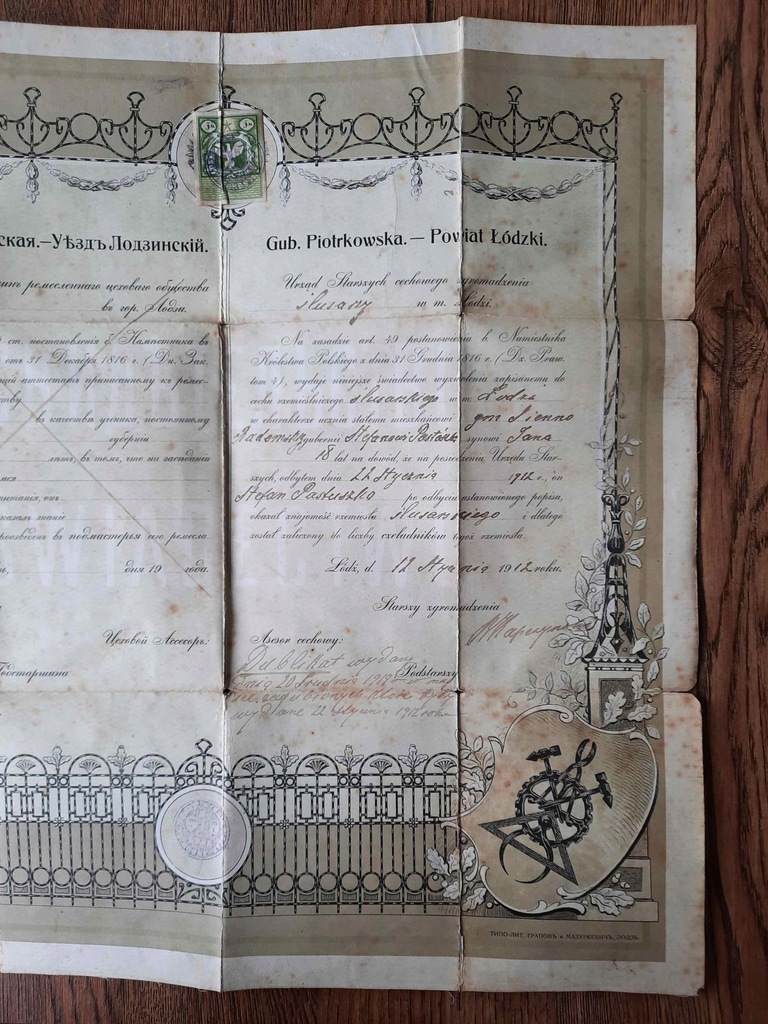 ская.—Уѣздъ Лодзинскій.
ремесленнаго цеховаго общества
въ гор. Лодзи.
ст. постановленія б. Намѣстника въ
отъ 31 Декабря 1816 г. (Дн. Зак.
аттестатъ приписанному къ ремес-
въ качествѣ ученика, постоянному
губерніи
лѣтъ, въ томъ, что на засѣданіи
онъ
знаніе
въ подмастерья сего ремесла.
дня 19 года.
Цеховой Ассесоръ:
Подстаршина
Gub. Piotrkowska.— Powiat Łódzki.
Urząd Starszych cechowego zgromadzenia
ślusarzy w m. Łodzi.
Na zasadzie art. 49 postanowienia b. Namiestnika
Królestwa Polskiego z dnia 31 Grudnia 1816 r. (Dz. Praw
tom 4), wydaje niniejsze świadectwo wyzwolenia zapisanemu do
cechu rzemieślniczego ślusarskiego w m. Łodzi
w charakterze ucznia stałemu mieszkańcowi gm Sienno
gubernii synowi Jana
18 lat na dowód, że na posiedzeniu Urzędu Star-
szych, odbytem dnia 22 Stycznia 1912 r., on
Stefan Pastuszko po odbyciu ustanowionego popisu,
okazał znajomość rzemiosła ślusarskiego i dlatego
został zaliczony do liczby czeladników tegoż rzemiosła.
Łódź, d. 12 Stycznia 1912 roku.
Starszy zgromadzenia
Asesor cechowy:
Dublikat wydany
Podstarszy
dnia 20 Grudnia
wydane 22 Stycznia 1912 roku
ТИПО-ЛИТ. ГРАПОВЪ и МАЗУРКЕВИЧЪ, ЛОДЗЬ.